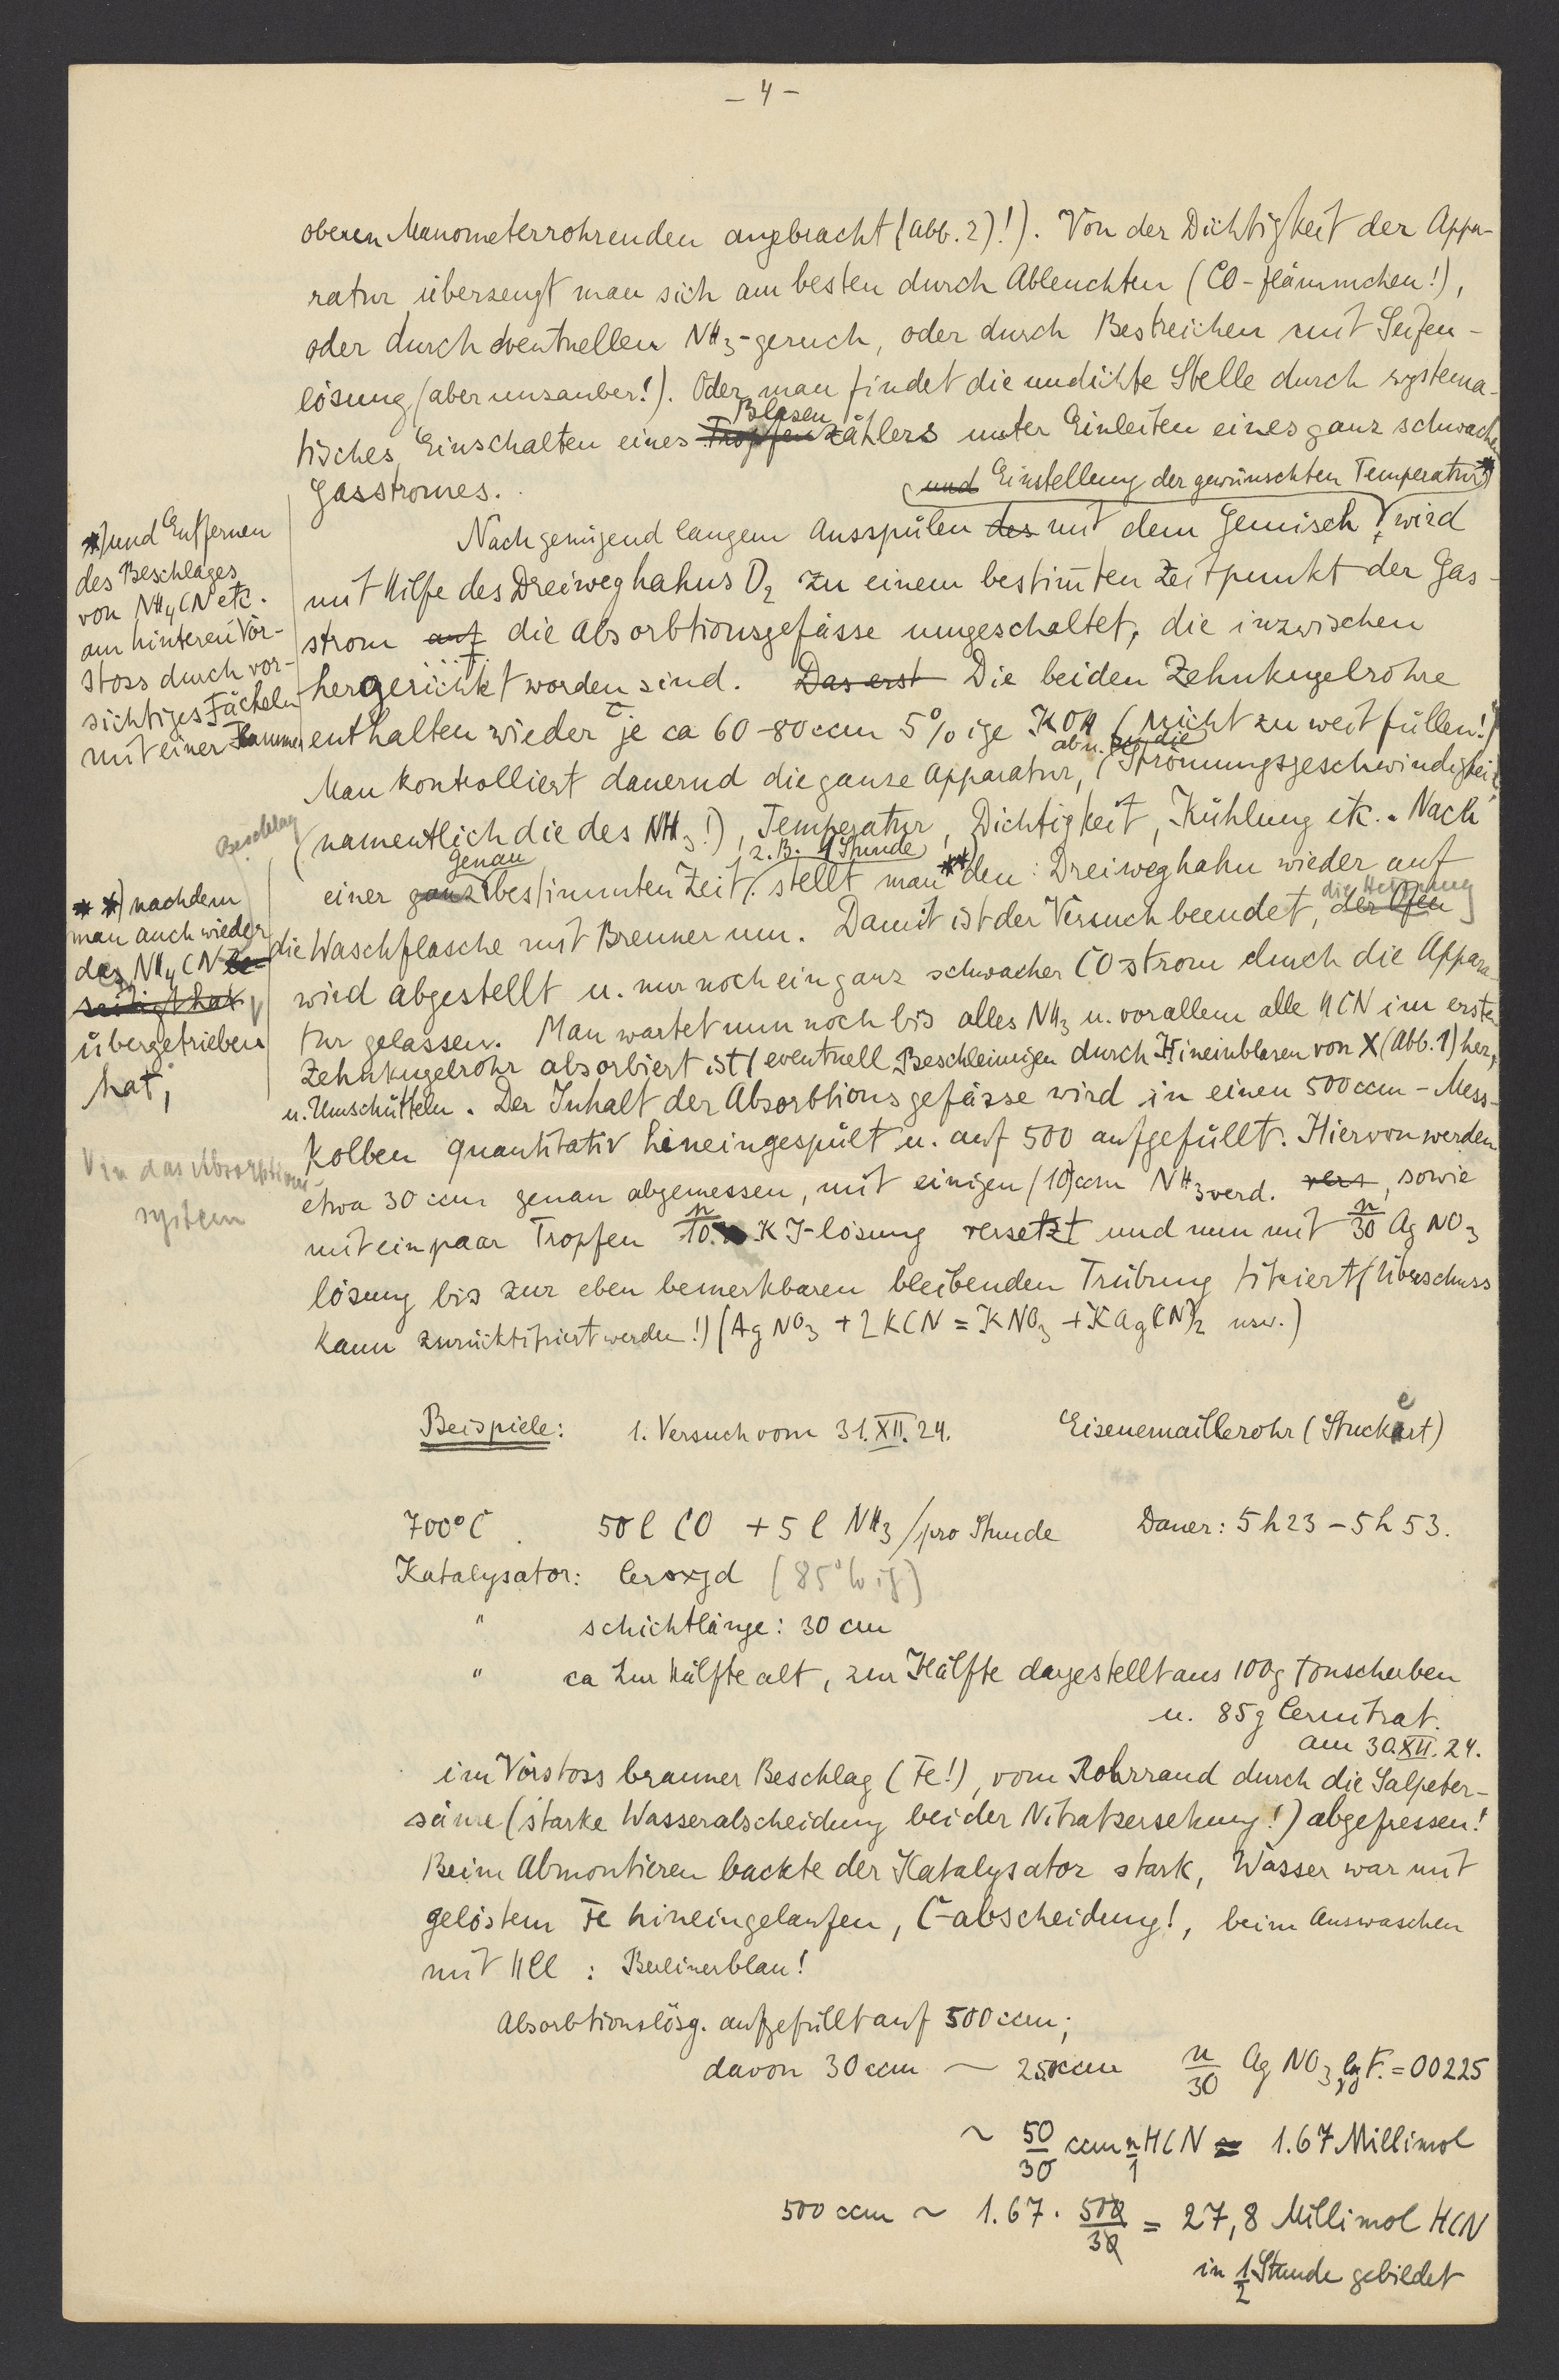 - 4 -
oberen Manometerrohrenden angebracht (Abb. 2)!). Von der Dichtigkeit der Appa-
ratur überzeugt man sich am besten durch Ableuchten (CO-flämmchen!),
oder durch eventuellen NH3-geruch, oder durch Bestreichen mit Seifen-
lösung (aber unsauber!). Oder man findet die undichte Stelle durch systema-
Blasen
tisches Einschalten eines Tropfenzählers unter Einleiten eines ganz schwachen
Gasstromes.
und Einstellung der gewünschten Temperatur *)
Nach genügend langem Ausspülen des mit dem Gemisch, wird
mit Hilfe des Dreiweghahns D2 zu einem bestimmten Zeitpunkt der Gas-
strom auf die Absorbtionsgefässe umgeschaltet, die inzwischen
hergerichtet worden sind. Das erst Die beiden Zehnkugelrohre
enthalten wieder je ca 60-80 ccm 5%ige KOH (nicht zu weit füllen!)
Man kontrolliert dauernd die ganze Apparatur, Strömungsgeschwindigkeit
(namentlich die des NH3!), Temperatur, Dichtigkeit, Kühlung etc.. Nach
genau
z.B. 1 Stunde
einer ganz bestimmten Zeit, stellt man **) den Dreiweghahn wieder auf
die Heizung
die Waschflasche mit Brenner um. Damit ist der Versuch beendet, der Ofen
wird abgestellt u. nur noch ein ganz schwacher CO-strom durch die Appara-
tur gelassen. Man wartet nun noch bis alles NH3 u. vor allem alle HCN im ersten
Zehnkugelrohr absorbiert ist (eventuell Beschleunigen durch Hineinblasen von X (Abb. 1) her,
u. Umschütteln. Der Inhalt der Absorbtionsgefässe wird in einen 500 ccm-Mess-
kolben quantitativ hineingespült u. auf 500 aufgefüllt. Hiervon werden
etwa 30 ccm genau abgemessen, mit einigen (10) ccm NH3 verd. vers, sowie
mit ein paar Tropfen n/10 KJ-lösung versetzt und nun mit n/30 AgNO3
lösung bis zur eben bemerkbaren bleibenden Trübung titriert (Überschuss
kann zurücktitriert werden!) (AgNO3 + 2KCN = KNO3 + KAg(CN)2 usw.)
*) und Entfernen
des Beschlages
von NH4CN etc.
am hinteren Vor-
stoss durch vor-
sichtiges Fächeln
mit einer Flamme
Beschlag
**) nachdem
man auch wieder
das NH4CN be-
seitigt hat
übergetrieben
hat,
V in das Absorptions-
system
Beispiele: 1. Versuch vom 31.XII.24. Eisenemaillerohr (Stuckert)
700°C 50 l CO + 5 l NH3/pro Stunde Dauer: 5h23 - 5h53.
Katalysator: Ceroxyd (85%ig)
" schichtlänge: 30 cm
" ca zur Hälfte alt, zur Hälfte dargestellt aus 100g Tonscherben
u. 85g Cernitrat.
am 30.XII.24.
im Vorstoss brauner Beschlag (Fe!), vom Rohrrand durch die Salpeter-
säure (starke Wasserabscheidung bei der Nitratzersetzung!) abgefressen!
Beim Abmontieren backte der Katalysator stark, Wasser war mit
gelöstem Fe hineingelaufen, C-abscheidung!, beim Auswaschen
mit HCl : Berlinerblau!
Absorbtionslösg. aufgefüllt auf 500 ccm;
davon 30 ccm ~ 25 ccm n/30 AgNO3 lg F. = 00225
~ 50/30 ccm n/1 HCN = 1.67 Millimol
500 ccm ~ 1.67 · 500/30 = 27,8 Millimol HCN
in 1/2 Stunde gebildet